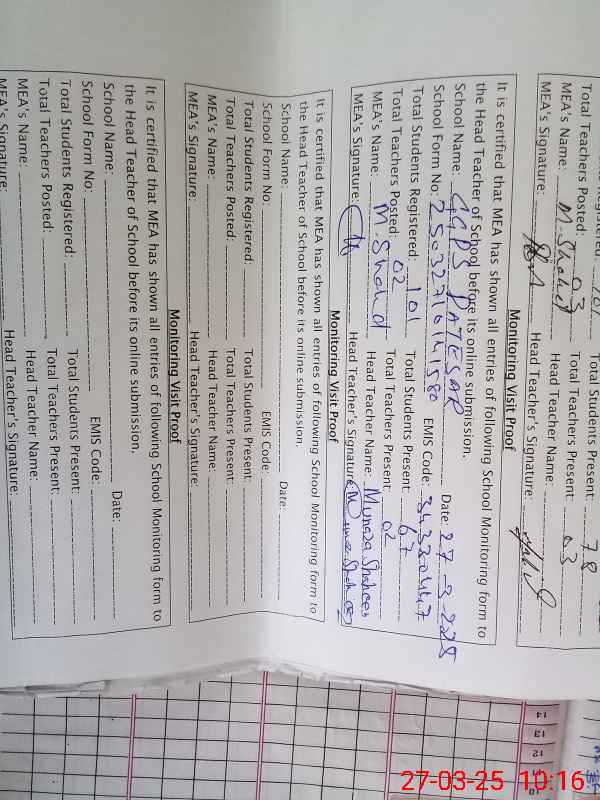 Total Teachers Posted: 03 Total Teachers Present: 03
MEA's Name: M. Shahid Head Teacher Name:
MEA's Signature: Head Teacher's Signature:
Total Students Present: 78
Monitoring Visit Proof
It is certified that MEA has shown all entries of following School Monitoring form to
the Head Teacher of School before its online submission.
School Name: GGPS PATESAR Date: 27-3-225
School Form No: EMIS Code:
Total Students Registered: 101 Total Students Present: 67
Total Teachers Posted: 02 Total Teachers Present: 02
MEA's Name: M. Shahid Head Teacher Name: Munaza Shaheen
MEA's Signature: Head Teacher's Signature:
Monitoring Visit Proof
It is certified that MEA has shown all entries of following School Monitoring form to
the Head Teacher of School before its online submission.
School Name: Date:
School Form No: EMIS Code:
Total Students Registered: Total Students Present:
Total Teachers Posted: Total Teachers Present:
MEA's Name: Head Teacher Name:
MEA's Signature: Head Teacher's Signature:
Monitoring Visit Proof
It is certified that MEA has shown all entries of following School Monitoring form to
the Head Teacher of School before its online submission.
School Name: Date:
School Form No: EMIS Code:
Total Students Registered: Total Students Present:
Total Teachers Posted: Total Teachers Present:
MEA's Name: Head Teacher Name:
MEA's Signature: Head Teacher's Signature:
14
13
12
11
10
27-03-25 10:16